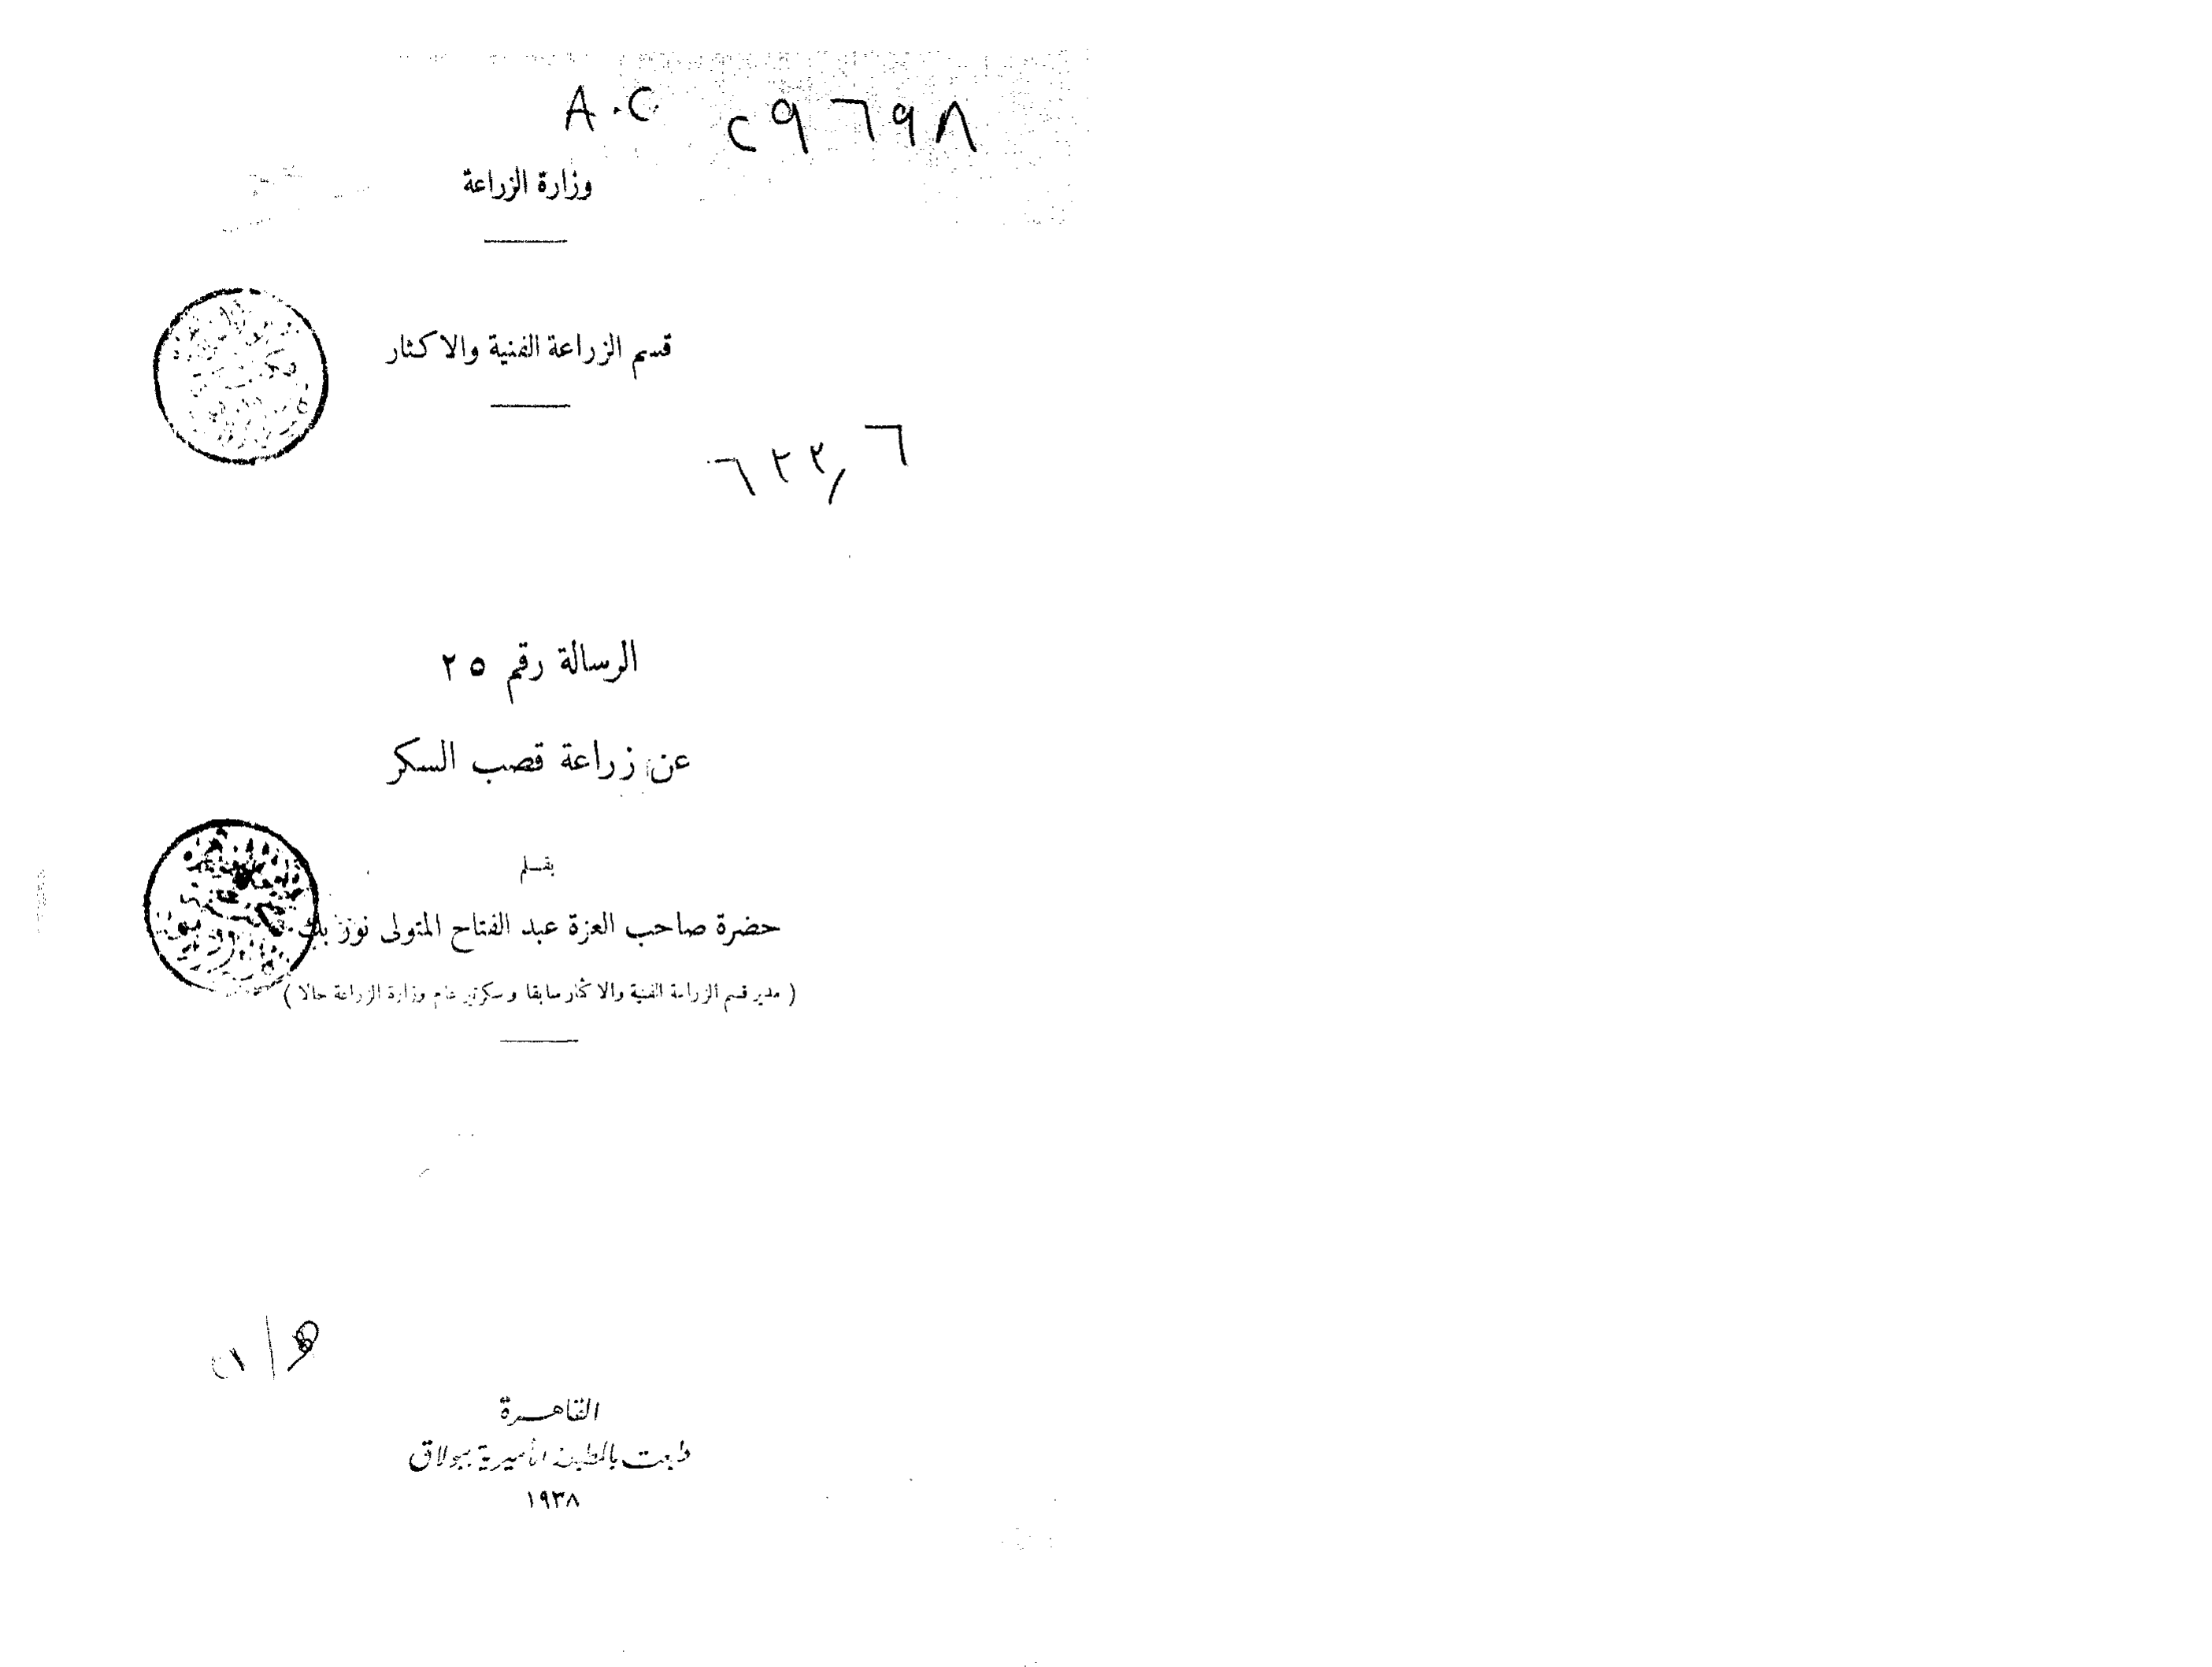 A.C ٢٩٦٩٨
وزارة الزراعة
قسم الزراعة الفنية والاكثار
٦٣٣,٦
الرسالة رقم ٢٥
عن زراعة قصب السكر
بقلم
حضرة صاحب العزة عبد الفتاح المتولى نور بك
( مدير قسم الزراعة الفنية والاكثار سابقا وسكرتير عام وزارة الزراعة حالا )
القاهرة
طبعت بالمطبعة الأميرية ببولاق
١٩٣٨